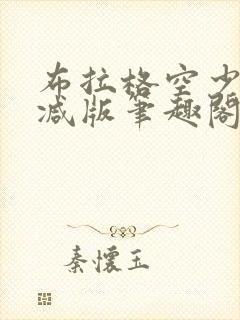 布拉格空少
减版笔趣阁
秦怀玉